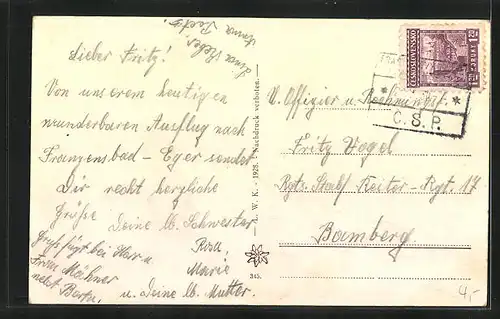 Lieber Fritz!
Von unserem heutigen
wunderbaren Ausflug nach
Franzensbad - Eger sendet
Dir recht herzliche
Grüße Deine lb. Schwester
Marie
u. Deine lb. Mutter.
Gruß fügt bei Herr u.
Frau
nebst
Anna
A. W. K. - 1925. Nachdruck verboten.
345.
ČESKOSLOVENSKO
1.20
C. S. P.
U. Offizier u.
Fritz Vogel
Rgts. Stab Reiter-Rgt. 17
Bamberg
4,-